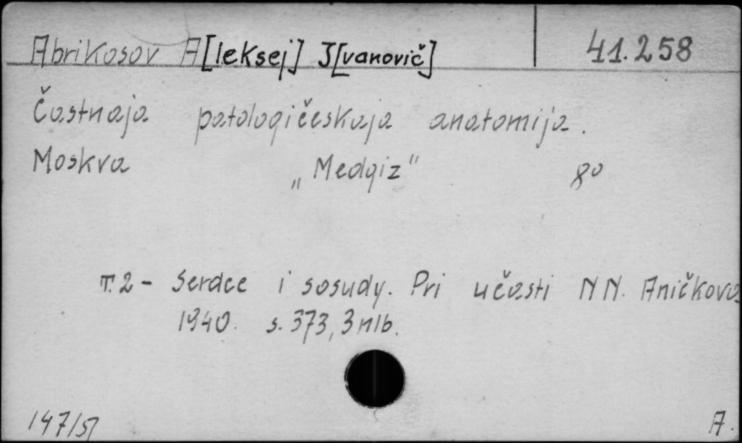 Abrikosov A[leksej] I[vanovič] 41.258
Častnaja patologičeskaja anatomija.
Moskva „Medgiz" 8°
T.2 - Serdce i sosudy. Pri učasti N N. Aničkova
1940. s. 373, 3 nlb.
147/51 A.